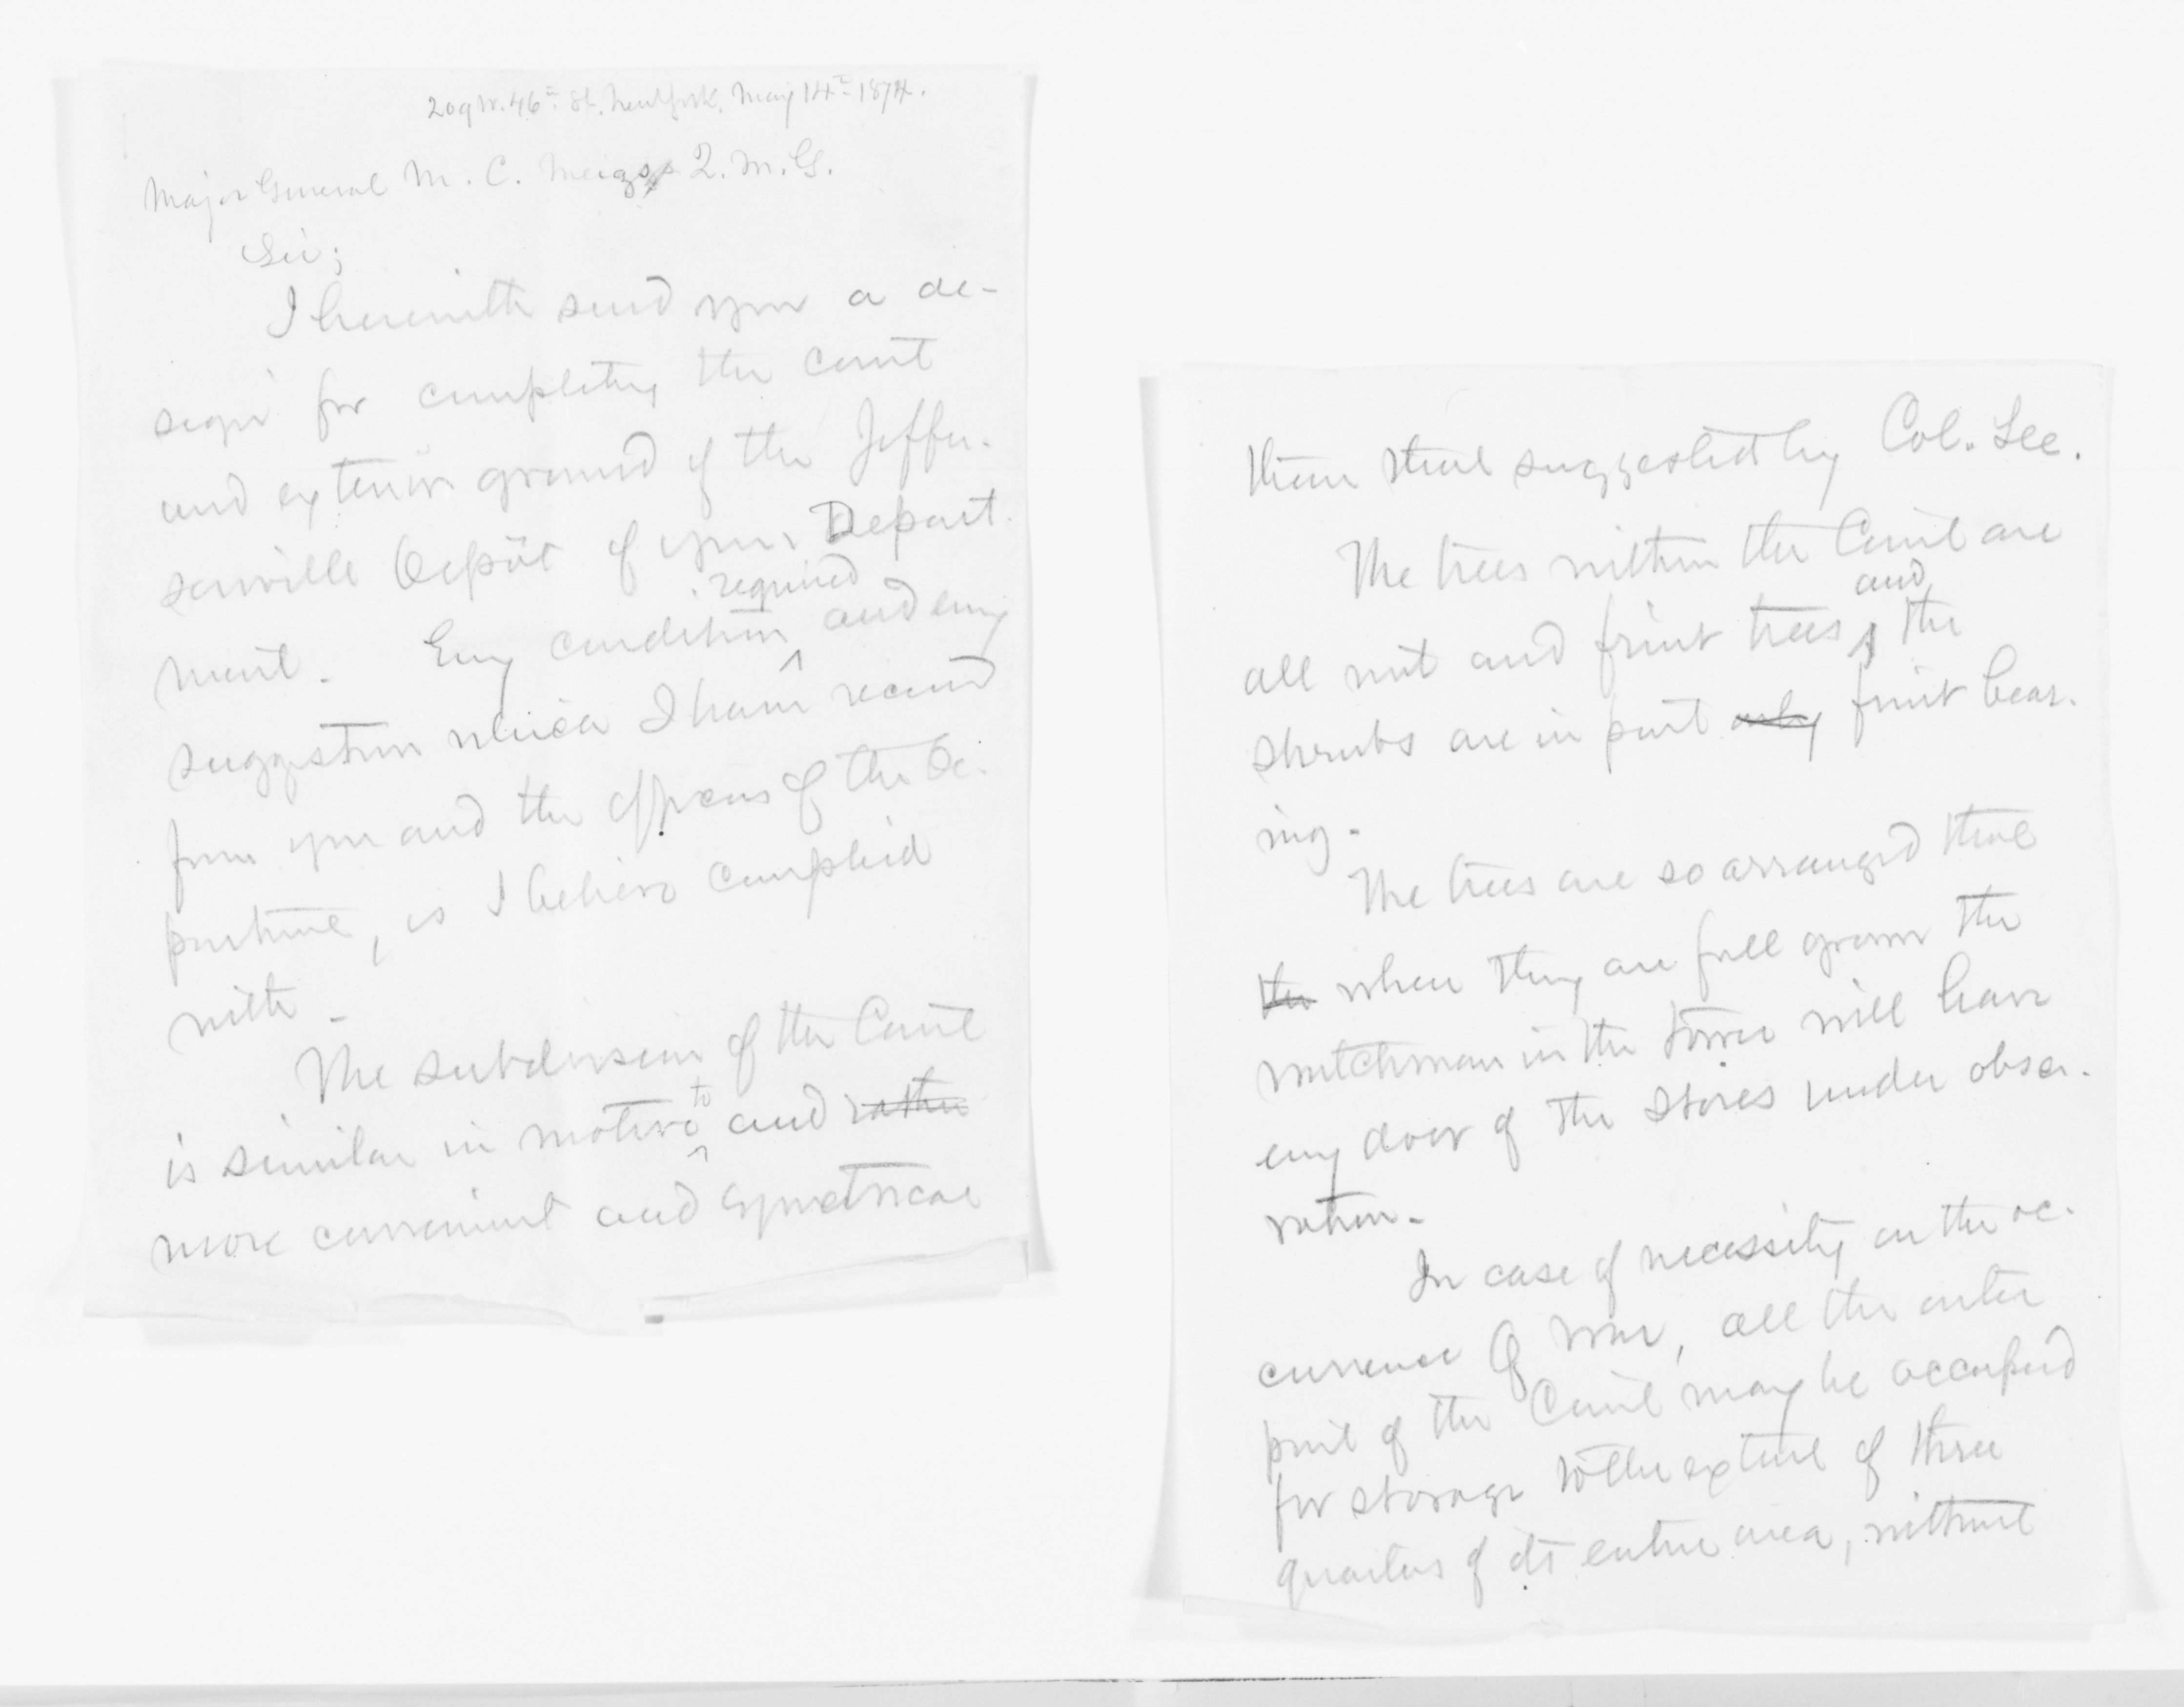 209 W. 46th St. New York, May 14th 1874.
Major General M. C. Meigs, Q. M. G.
Sir;
I herewith send you a de-
sign for completing the court
and exterior ground of the Jeffer-
sonville Depôt of your Depart-
required
ment. Every condition ^ and every
suggestion which I have received
from you and the officers of the De-
partment, is I believe complied
with.
The subdivision of the Court
to
is similar in motive ^ and rather
more convenient and symetrical
than that suggested by Col. Lee.
The trees within the Court are
and
all nut and fruit trees, the
shrubs are in part only fruit bear-
ing.
The trees are so arranged that
the when they are full grown the
watchman in the tower will have
every door of the stores under obser-
vation.
In case of necessity on the oc-
currence of war, all the outer
part of the Court may be occupied
for storage to the extent of three
quarters of its entire area, without